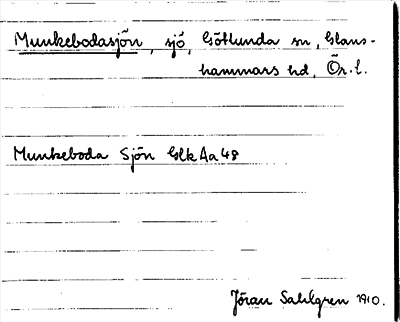 Munkebodasjön, sjö, Götlunda sn, Glans-
hammars hd, Ör. l.
Munkeboda Sjön GlkAa48
Jöran Sahlgren 1910.